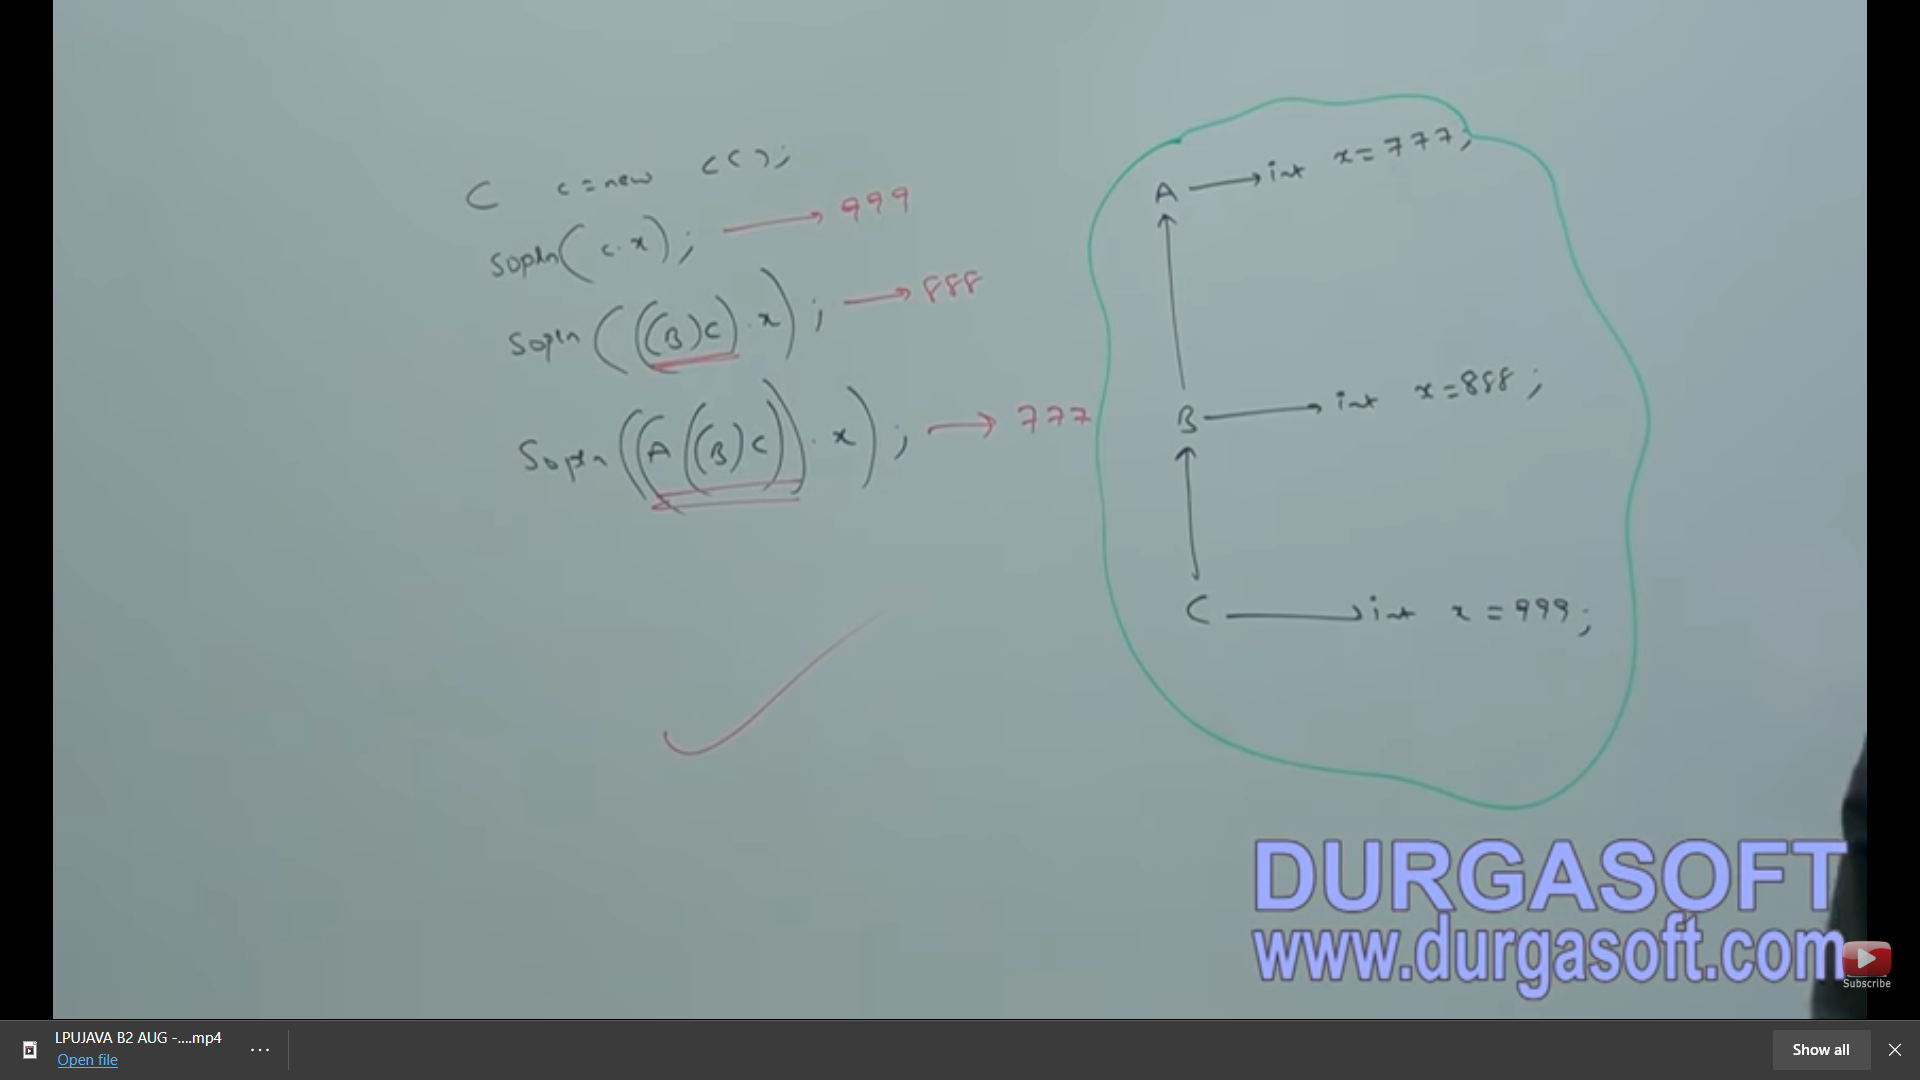 C c = new C();
Sopln(c.x); → 999
Sopln(((B)C).x); → 888
Sopln((A((B)C)).x); → 777
A → int x = 777;
B → int x = 888;
C → int x = 999;
DURGASOFT
www.durgasoft.com
Subscribe
LPUJAVA B2 AUG -....mp4
Open file
Show all